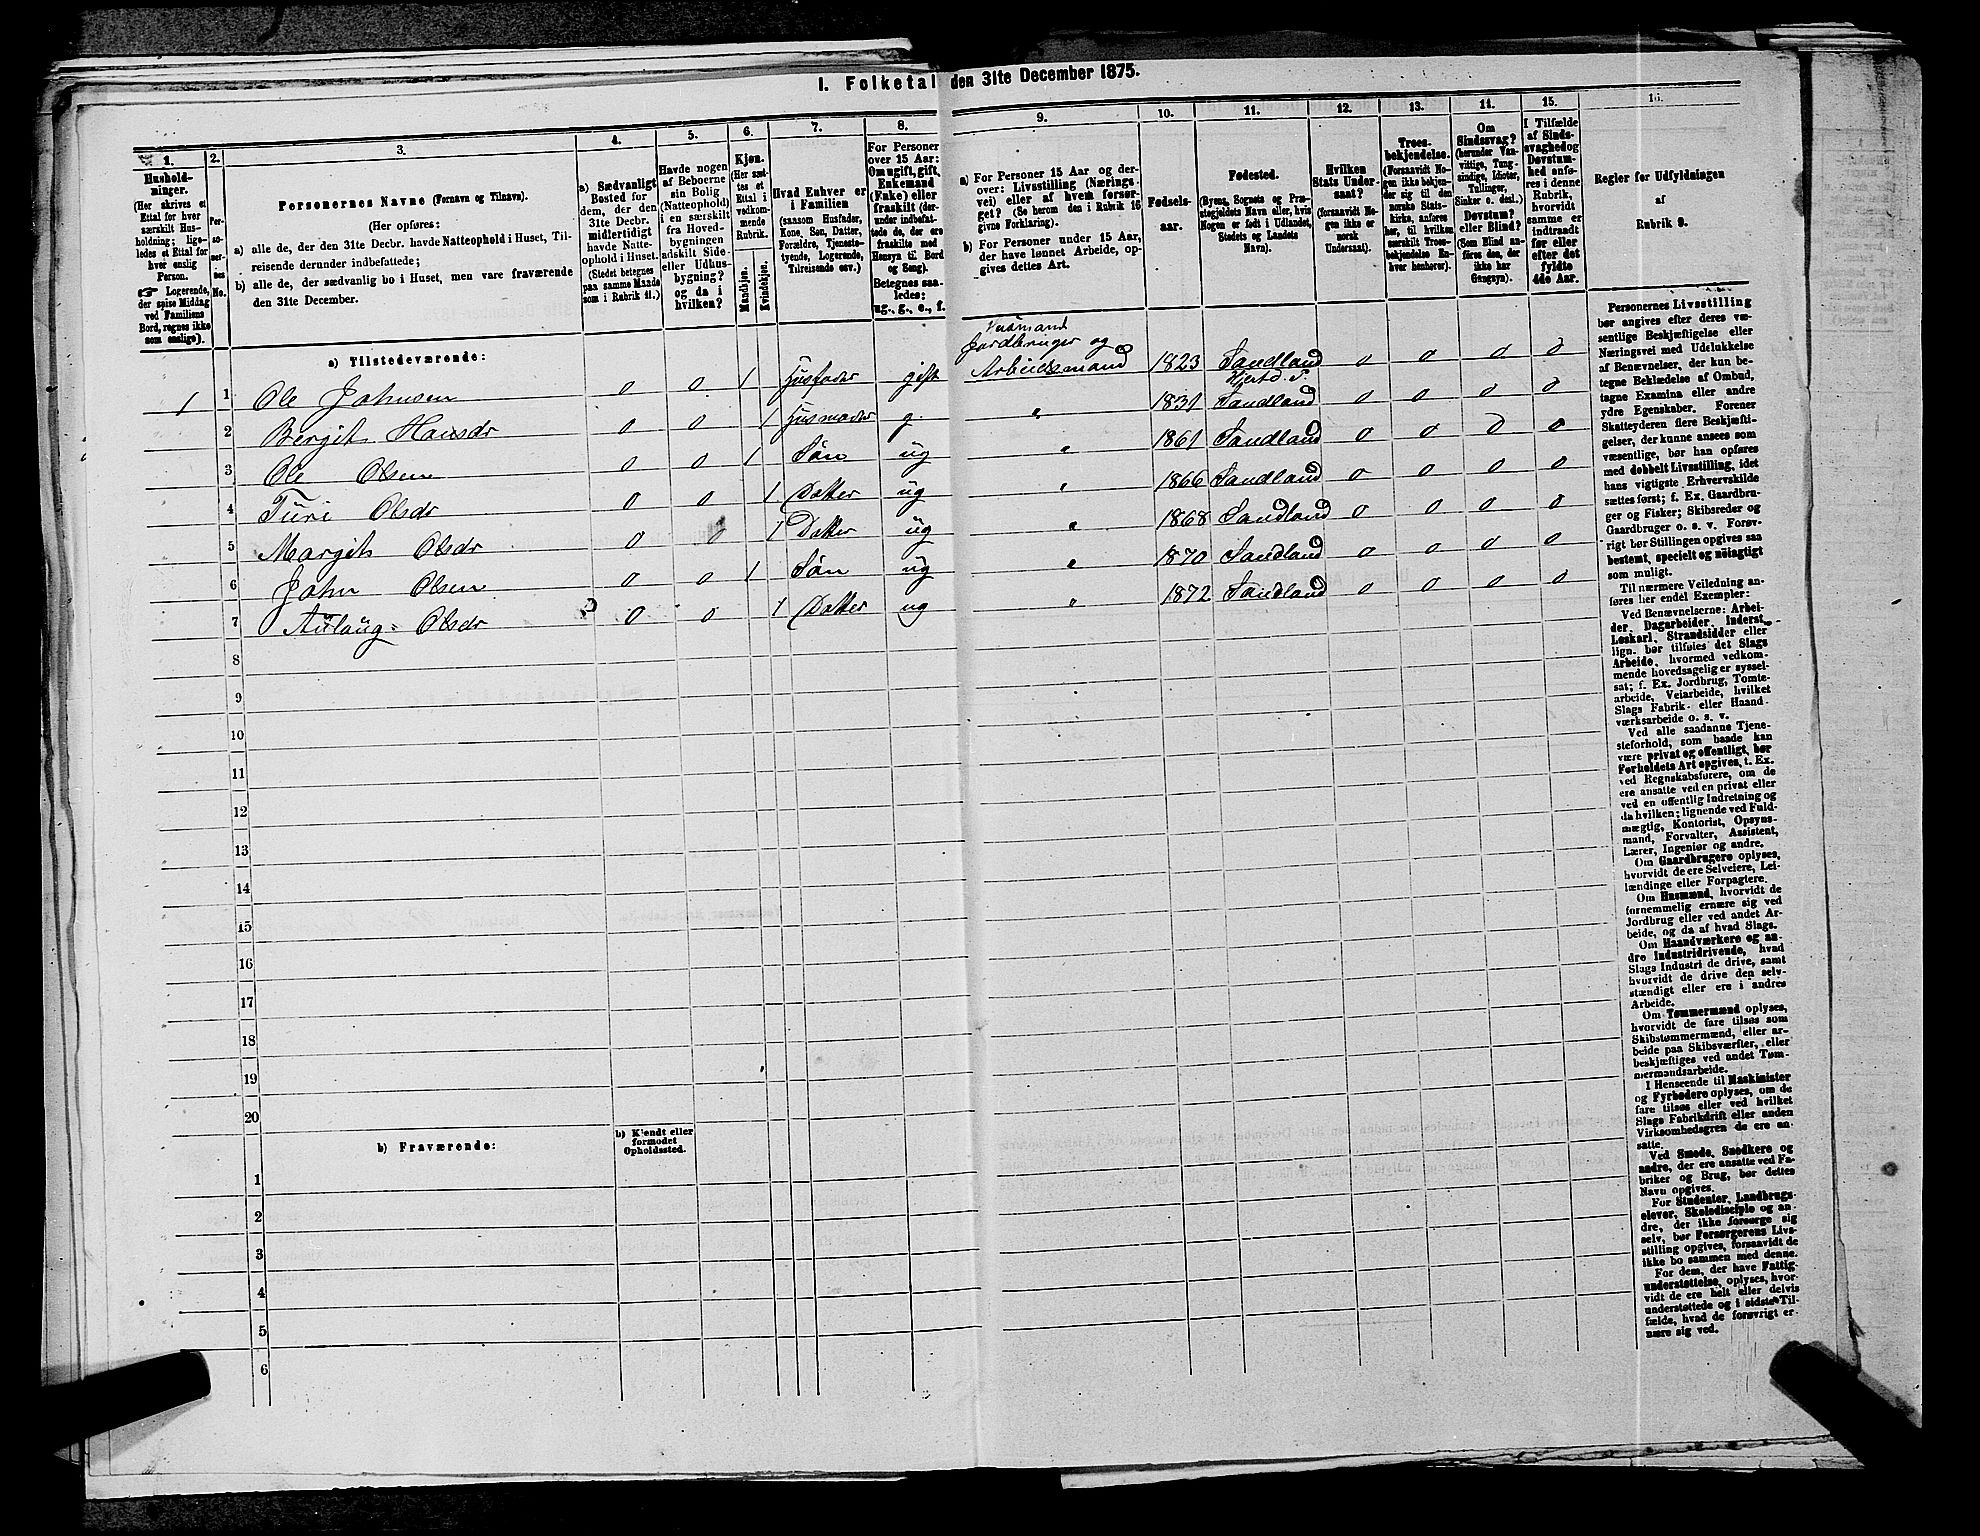 I. Folketal den 31te December 1875.
1. 2. 3. 4. 5. 6. 7. 8. 9. 10. 11. 12. 13. 14. 15. 16.
Hushold-
ninger.
(Her skrives et
Ettal for hver
særskilt Hus-
holdning; lige-
ledes et Ettal for
hver enslig
Person.
☞ Logerende,
der spise Middag
ved Familiens
Bord, regnes ikke
som enslige).
Per-
so-
ner-
nes
No.
Personernes Navne (Fornavn og Tilnavn).
(Her opføres:
a) alle de, der den 31te Decbr. havde Natteophold i Huset, Til-
reisende derunder indbefattede;
b) alle de, der sædvanlig bo i Huset, men vare fraværende
den 31te December.
a) Sædvanligt
Bosted for
dem, der den
31te Decbr.
midlertidigt
havde Natte-
ophold i Huset.
(Stedet betegnes
paa samme Maade
som i Rubrik 11.)
Havde nogen
af Beboerne
sin Bolig
(Natteophold)
i en særskilt
fra Hoved-
bygningen
adskilt Side-
eller Udhus-
bygning?
og da i
hvilken?
Kjøn.
(Her sæt-
tes et
Ettal i
vedkom-
mende
Rubrik.
Mandkjøn.
Kvindekjøn.
Hvad Enhver er
i Familien
(saasom Husfader,
Kone, Søn, Datter,
Forældre, Tjeneste-
tyende, Logerende,
Tilreisende osv.)
For Personer
over 15 Aar:
Om ugift, gift,
Enkemand
(Enke) eller
fraskilt (der-
under indbefat-
tede de, der ere
fraskilte med
Hensyn til Bord
og Seng).
Betegnes saa-
ledes:
ug., g., e., f.
a) For Personer 15 Aar og der-
over: Livsstilling (Nærings-
vei) eller af hvem forsør-
get? (Se herom den i Rubrik 16
givne Forklaring).
b) For Personer under 15 Aar,
der have lønnet Arbeide, op-
gives dettes Art.
Fødsels-
aar.
Fødested.
(Byens, Sognets og Præ-
stegjeldets Navn eller, hvis
Nogen er født i Udlandet,
Stedets og Landets
Navn).
Hvilken
Stats Under-
saat?
(forsaavidt No-
gen ikke er
norsk
Undersaat).
Troes-
bekjendelse.
(Forsaavidt No-
gen ikke bekjen-
der sig til den
norske Stats-
kirke, anføres
her, til hvilken
særskilt Troes-
bekjendelse En-
hver henhører).
Om
Sindssvag?
(herunder Van-
vittige, Tung-
sindige, Idioter,
Tullinger,
Sinker o. desl.)
Døvstum?
eller Blind?
(Som Blind an-
føres den, der
ikke har
Gangsyn).
I Tilfælde
af Sinds-
svaghed og
Døvstum-
hed anfø-
res i denne
Rubrik,
hvorvidt
samme er
indtraadt
før eller
efter det
fyldte
4de Aar.
Regler for Udfyldningen
af
Rubrik 9.
a) Tilstedeværende:
1 1 Ole Johnsen 0 0 1 Husfader gift Husmand Jordbruger og Arbeidsmand 1823 Sandland Hjertd. P. 0 0 0 0
2 Bergit Hansdr 0 0 1 Husmoder g. " 1831 Sandland 0 0 0 0
3 Ole Olsen 0 0 1 Søn ug " 1861 Sandland 0 0 0 0
4 Turi Olsdr 0 0 1 Datter ug " 1866 Sandland 0 0 0 0
5 Margit Olsdr 0 0 1 Datter ug " 1868 Sandland 0 0 0 0
6 John Olsen 0 0 1 Søn ug " 1870 Sandland 0 0 0 0
7 Aulaug Olsdr 0 0 1 Datter ug " 1872 Sandland 0 0 0 0
8
9
10
11
12
13
14
15
16
17
18
19
20
b) Fraværende:
b) Kjendt eller
formodet
Opholdssted.
1
2
3
4
5
6
Personernes Livsstilling
bør angives efter deres væ-
sentlige Beskjæftigelse eller
Næringsvei med Udelukkelse
af Benævnelser, der kun be-
tegne Beklædelse af Ombud,
tagne Examina eller andre
ydre Egenskaber. Forener
Skatteyderen flere Beskjæfti-
gelser, der kunne ansees som
væsentlige, bør han opføres
med dobbelt Livsstilling, idet
hans vigtigste Erhvervskilde
sættes først; f. Ex. Gaardbru-
ger og Fisker; Skibsreder og
Gaardbruger o. s. v. Forøv-
rigt bør Stillingen opgives saa
bestemt, specielt og nøiagtigt
som muligt.
Til nærmere Veiledning an-
føres her endel Exempler:
Ved Benævnelserne: Arbei-
der, Dagarbeider, Inderst,
Løskarl, Strandsidder eller
lign. bør tilføies det Slags
Arbeide, hvormed vedkom-
mende hovedsagelig er syssel-
sat; f. Ex. Jordbrug, Tomte-
arbeide, Veiarbeide, hvilket
Slags Fabrik- eller Haand-
værksarbeide o. s. v.
Ved alle saadanne Tjene-
steforhold, som baade kan
være privat og offentligt, bør
Forholdets Art opgives, t. Ex.
ved Regnskabsførere, om de
ere ansatte ved en privat eller
ved en offentlig Indretning og
da hvilken; lignende ved Fuld-
mægtig, Kontorist, Opsyns-
mand, Forvalter, Assistent,
Lærer, Ingeniør og andre.
Om Gaardbrugere oplyses,
hvorvidt de ere Selveiere, Lei-
lændinge eller Forpagtere.
Om Husmænd, hvorvidt de
fornemmelig ernære sig ved
Jordbrug eller ved andet Ar-
beide, og da af hvad Slags.
Om Haandværkere og an-
dre Industridrivende, hvad
Slags Industri de drive, samt
hvorvidt de drive den selv-
stændigt eller ere i andres
Arbeide.
Om Tømmermænd oplyses,
hvorvidt de fare tilsøs som
Skibstømmermænd, eller ar-
beide paa Skibsværfter, eller
beskjæftiges ved andet Tøm-
mermandsarbeide.
I Henseende til Maskinister
og Fyrbødere oplyses, om de
fare tilsøs eller ved hvilket
Slags Fabrikdrift eller anden
Virksomhedsgren de ere an-
satte.
Ved Smede, Snedkere og
andre, der ere ansatte ved Fa-
briker og Brug, bør dettes
Navn opgives.
For Studenter, Landbrugs-
elever, Skoledisciple og an-
dre, der ikke forsørge sig
selv, bør Forsørgerens Livs-
stilling opgives, forsaavidt de
ikke bo sammen med denne.
For dem, der have Fattig-
understøttelse, oplyses, hvor-
vidt de ere helt eller delvis
understøttede og i sidste Til-
fælde, hvad de forøvrigt er-
nære sig ved.